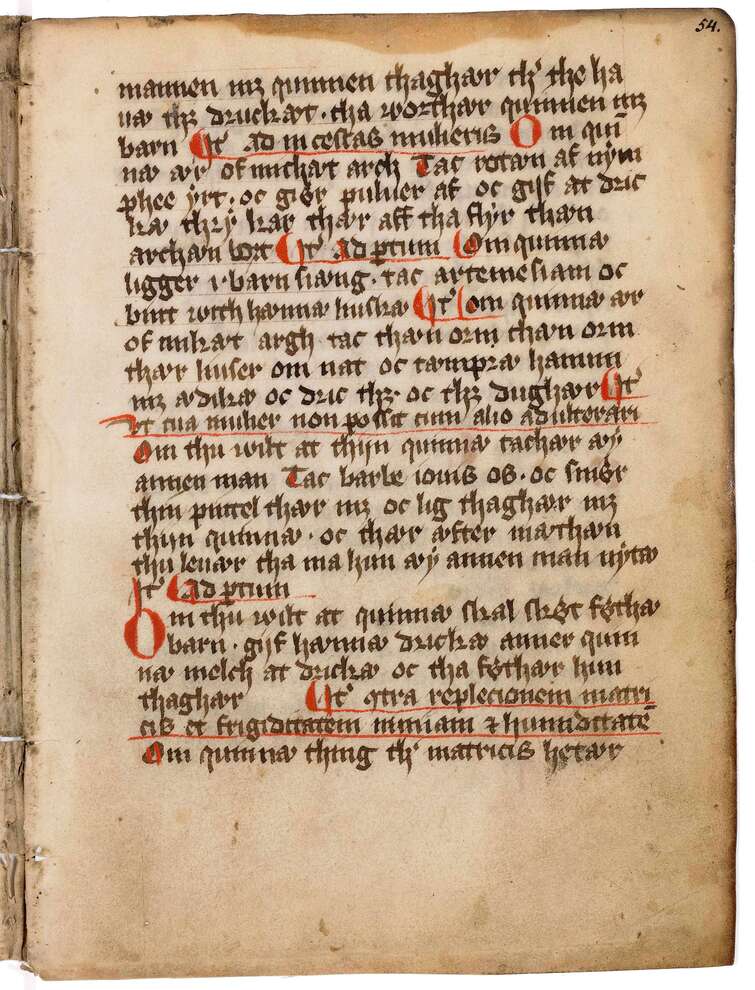 54.
mannen mꝫ quinnen thaghær thꝫ the ha
uæ thꝫ druckæt · tha worthær quinnen mꝫ
barn Itꝫ ad incestas mulieris Om qui
næ ær of michæt arch Tac rotæn af nÿm
phee ÿrt · oc gør puluer af oc gijf at dric
kæ thrÿ kar thær aff tha flÿr thæn
archæn bort Itꝫ Ad partum Om quinnæ
ligger i barnsiang · tac artemesiam oc
bint with hænnæ liuskæ Itꝫ Om quinnæ ær
of mikæt argh tac thæn orm thæn orm
thær liuser om nat oc tæmpræ hanum
mꝫ ædikæ oc dric thꝫ · oc thꝫ dughær Itꝫ
vt tua mulier non possit cum alio adulterari
Om thu wilt at thijn quinnæ tachær æÿ
annen man Tac barbe iouis os · oc smør
thin pintel thær mꝫ oc lig thaghær mꝫ
thijn quinnæ · oc thær æfter mæthæn
thu leuær tha ma hun æÿ annen man nÿtæ
Itꝫ Ad partum
Om thu wilt at quinnæ skal skøt føthæ
barn · gijf hænnæ drickæ anner quin
næ melch at drickæ oc tha føthær hun
thaghær Itꝫ contra replecionem matri
cis et frigiditatem nimiam ⁊ humiditatē
Om quinnæ thing thꝫ matricis hetær